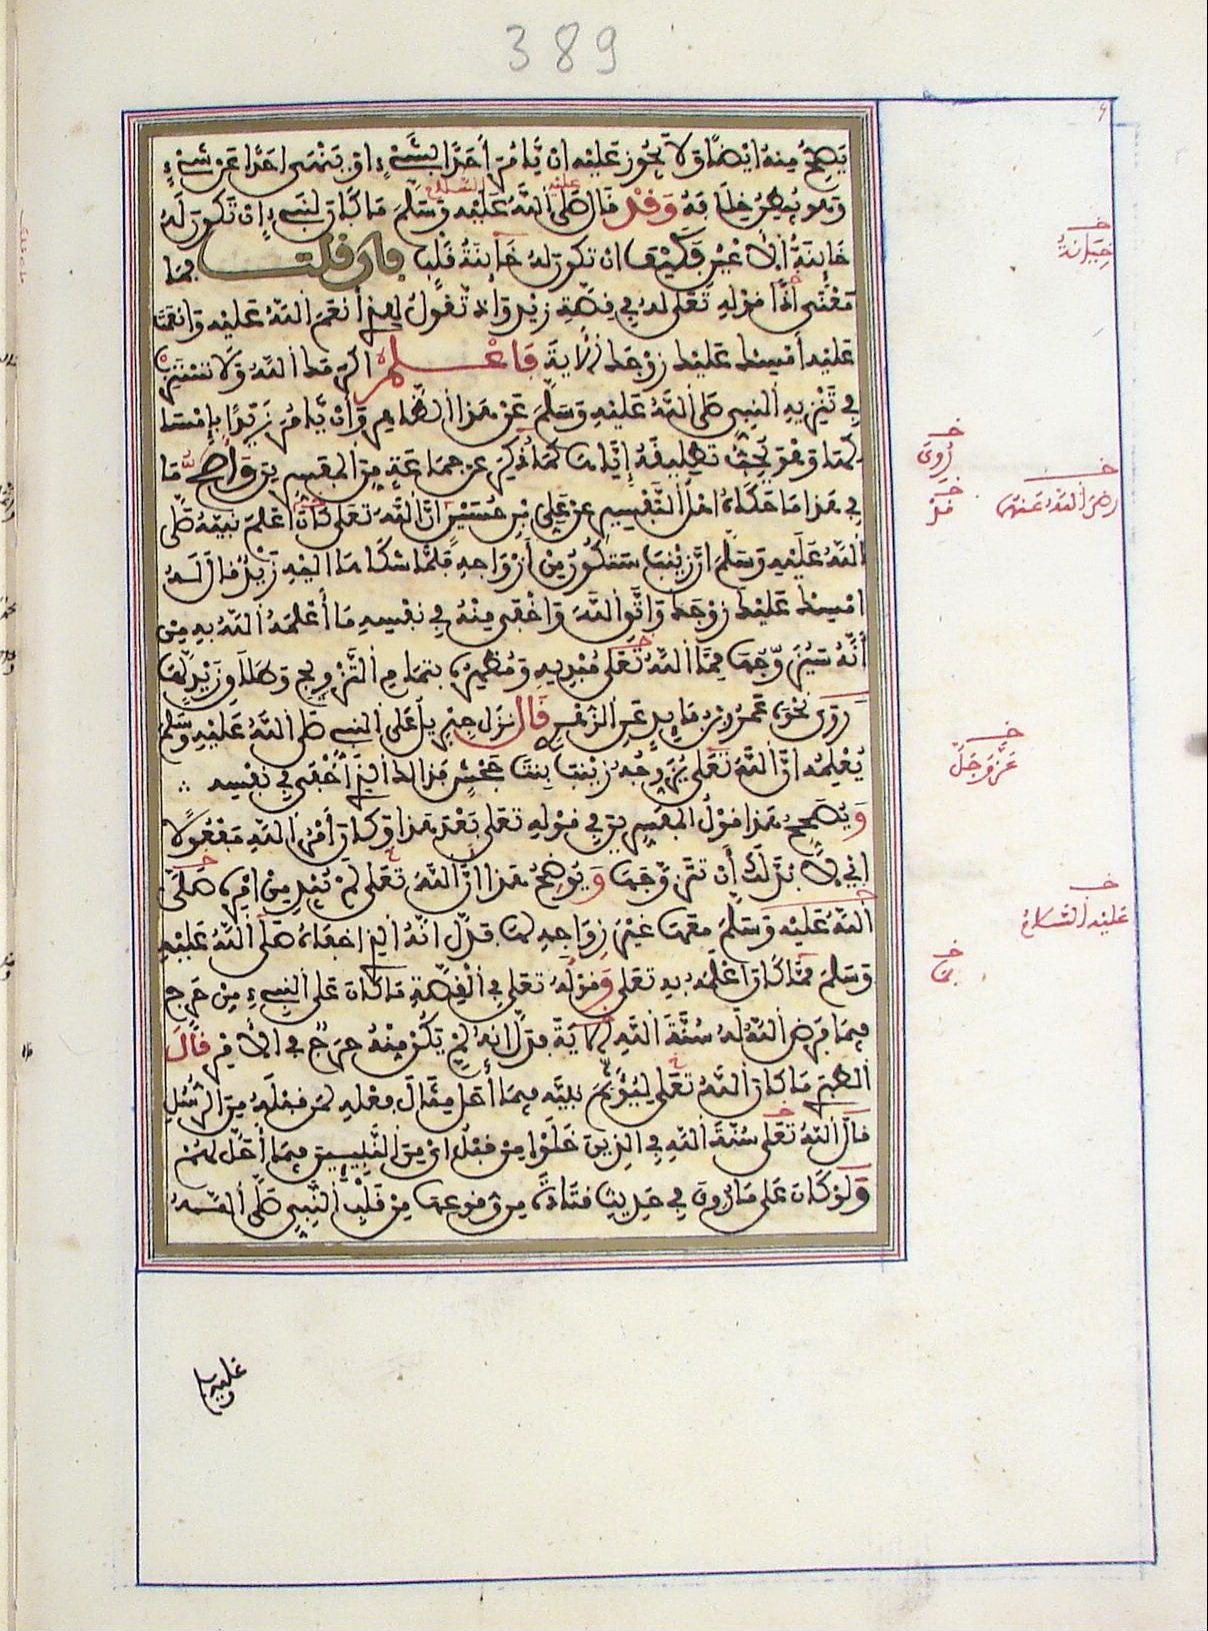 389
يصح منه ايضا ولا يجوز عليه ان يأمر أحدا بشيء او ينهى احدا عن شيء
وهو يظهر خلافه وقد قال صلى الله عليه وسلم ما كان لنبيء ان تكون له
عليه السلام
خاينة الاعين فكيف ان تكون له خاينة قلب فان قلت فما
خيانة
معنى اذا قوله تعلى له في قصة زيد واذ تقول للذي أنعم الله عليه وانعمت
عليه أمسك عليك زوجك الاية فاعلم اكرمك الله ولا تسترب
في تنزيه النبي صلى الله عليه وسلم عن هذا الظاهر وأن يأمر زيدا بإمساكها
وهو يحب تطليقه إياها كما ذكر عن جماعة من المفسرين وأصح ما
روي
في هذا ما حكاه اهل التفسير عن علي بن حسين ان الله تعلى كان اعلم نبيه صلى
رضي الله عنهم
الله عليه وسلم ان زينب ستكون من أزواجه فلما شكاها اليه زيد قال له
امسك عليك زوجك واتق الله واخفى منه في نفسه ما أعلمه الله به من
أنه سيتزوجها مما الله تعلى مبديه ومظهره بتمام التزويج وطلاق زيد لها
روى نحوه عمرو بن فايد عن الزهري قال نزل جبريل على النبي صلى الله عليه وسلم
يعلمه ان الله تعلى يزوجه زينب بنت جحش فذالك الذي أخفى في نفسه
عز وجل
ويصحح هذا قول المفسرين في قوله تعلى بعد هذا وكان أمر الله مفعولا
اي لا بد لك أن تتزوجها ويوضح هذا ان الله تعلى لم يبد من امره صلى
الله عليه وسلم معها غير زواجه لها فدل انه الذي اخفاه صلى الله عليه
عليه السلام
وسلم مما كان اعلمه به تعلى وقوله تعلى في القصة ما كان على النبيء من حرج
فيما فرض الله له سنة الله الاية فدل انه لم يكن منه حرج في الامر قال
الطبري ما كان الله تعلى ليؤثم نبيه فيما أحل مثال فعله لمن قبله من الرسل
قال الله تعلى سنة الله في الذين خلوا من قبل اي من النبيين فيما أحل لهم
ولو كان على ما روي في حديث قتادة من وقوعها من قلب النبي صلى الله
عليه